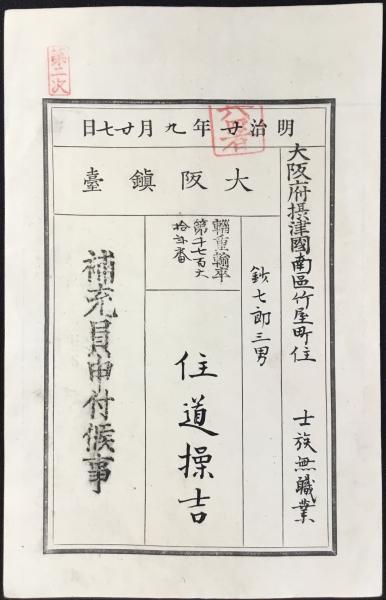 第二次
明治廿年九月廿七日
大阪鎮臺
大阪府摂津國南區竹屋町住 士族無職業
鈔七郎三男
輜重輸卒
第千七百六
拾番
住道操吉
補充員申付候事